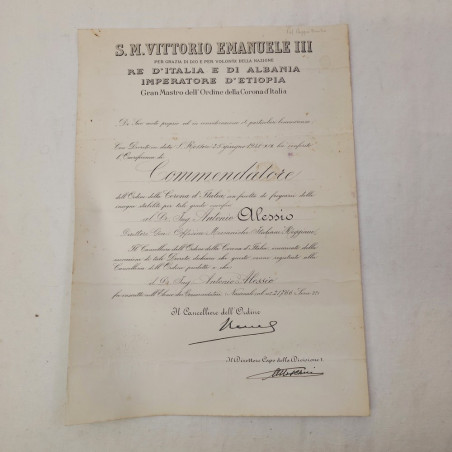 S. M. VITTORIO EMANUELE III
PER GRAZIA DI DIO E PER VOLONTÀ DELLA NAZIONE
RE D'ITALIA E DI ALBANIA
IMPERATORE D'ETIOPIA
Gran Mastro dell'Ordine della Corona d'Italia
Di Suo moto proprio ed in considerazione di particolari benemerenze
Con Decreto dato S. Rossore
l'Onorificenza di
Commendatore
dell'Ordine della Corona d'Italia, con facoltà di fregiarsi delle
insegne stabilite per tale grado
al Dr. Ing. Antonio Alessio
Direttore Officine Meccaniche Italiane Reggiane
Il Cancelliere dell'Ordine della Corona d'Italia, incaricato della
esecuzione di tale Decreto dichiara che questo venne registrato alla
Cancelleria dell'Ordine predetto e che
il Dr. Ing. Antonio Alessio
fu inscritto nell'Elenco dei Commendatori Nazionali al N.
Il Cancelliere dell'Ordine
Il Direttore Capo della Divisione